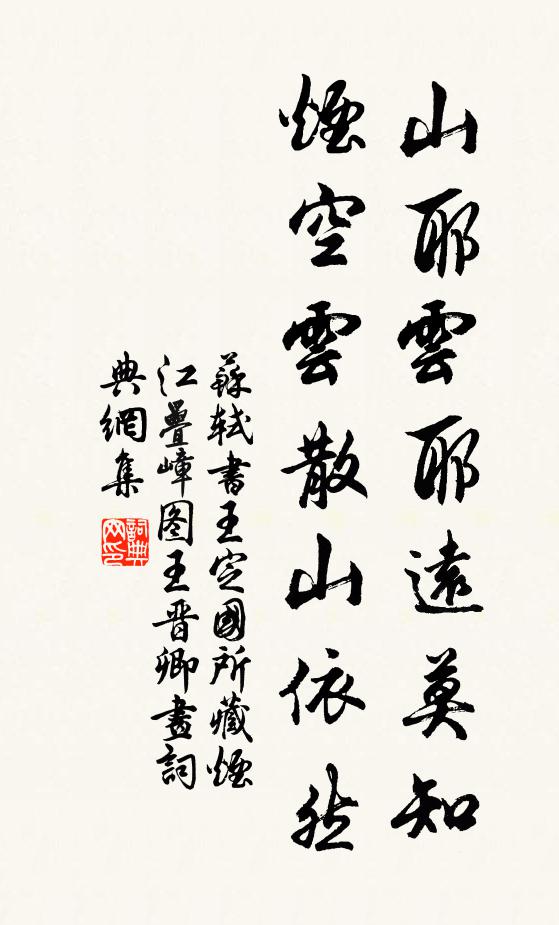 山耶雲耶遠莫知
煙空雲散山依然
蘇軾書王定國所藏煙
江疊嶂图王晉卿畫詞
典網集
詞典
网印